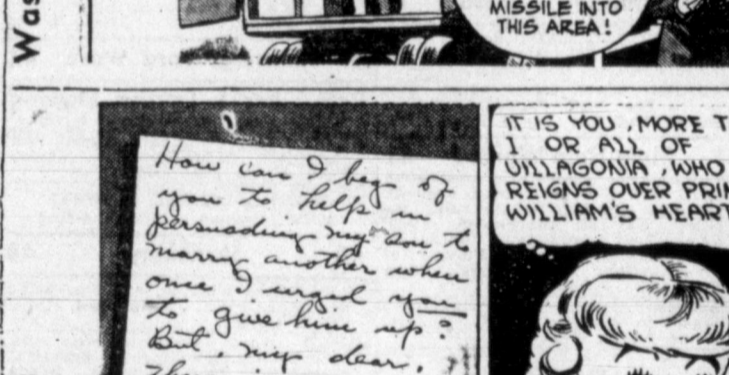 Was
MISSILE INTO
THIS AREA!
How can I beg of
you to help in
persuading my son to
marry another when
once I urged you
to give him up?
But, my dear,
IT IS YOU, MORE T
I OR ALL OF
VILLAGONIA, WHO
REIGNS OVER PRIN
WILLIAM'S HEART